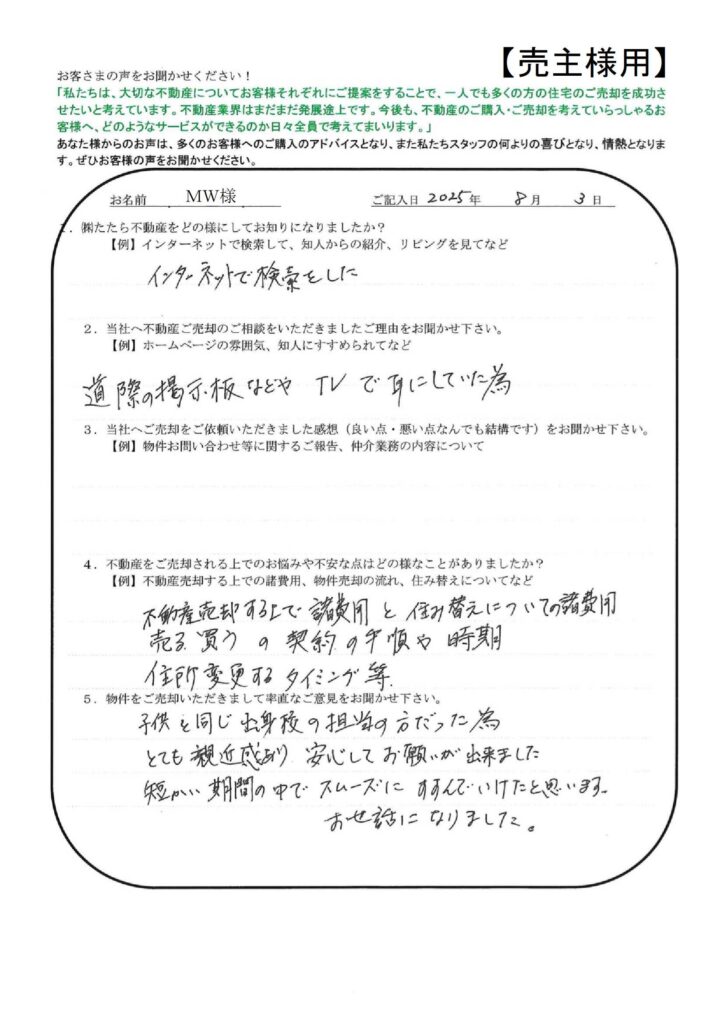 【売主様用】
お客さまの声をお聞かせください！
「私たちは、大切な不動産についてお客様それぞれにご提案をすることで、一人でも多くの方の住宅のご売却を成功さ
せたいと考えています。不動産業界はまだまだ発展途上です。今後も、不動産のご購入・ご売却を考えていらっしゃるお
客様へ、どのようなサービスができるのか日々全員で考えてまいります。」
あなた様からのお声は、多くのお客様へのご購入のアドバイスとなり、また私たちスタッフの何よりの喜びとなり、情熱となりま
す。ぜひお客様の声をお聞かせください。
お名前 MW様 ご記入日 2025年 8月 3日
1．㈱たたら不動産をどの様にしてお知りになりましたか？
【例】インターネットで検索して、知人からの紹介、リビングを見てなど
インターネットで検索をした
2．当社へ不動産ご売却のご相談をいただきましたご理由をお聞かせ下さい。
【例】ホームページの雰囲気、知人にすすめられてなど
道際の掲示板などや TVで耳にしていた為
3．当社へご売却をご依頼いただきました感想（良い点・悪い点なんでも結構です）をお聞かせ下さい。
【例】物件お問い合わせ等に関するご報告、仲介業務の内容について
4．不動産をご売却される上でのお悩みや不安な点はどの様なことがありましたか？
【例】不動産売却する上での諸費用、物件売却の流れ、住み替えについてなど
不動産売却する上で諸費用と住み替えについての諸費用
売る、買うの契約の手順や時期
住所変更するタイミング等.
5．物件をご売却いただきまして率直なご意見をお聞かせ下さい。
子供と同じ出身校の担当の方だった為
とても親近感あり 安心してお願いが出来ました
短かい期間の中でスムーズにすすんでいけたと思います。
お世話になりました。